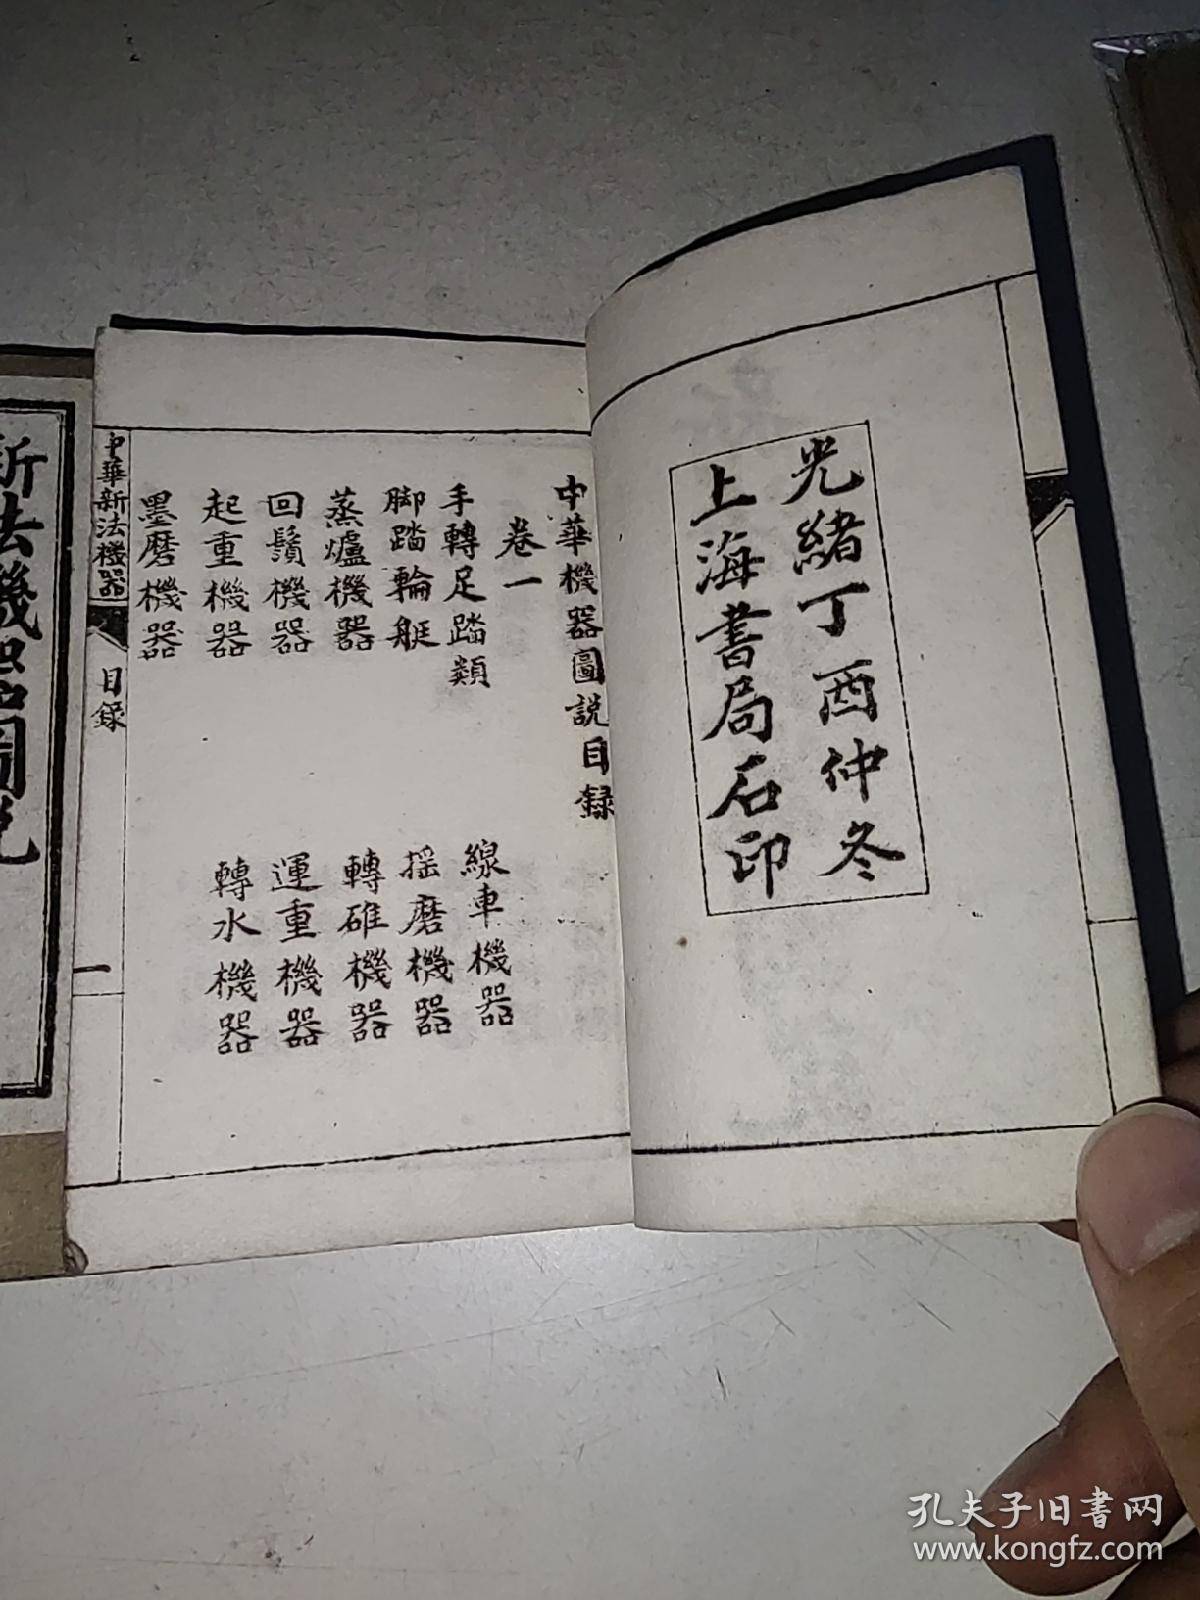 光緒丁酉仲冬
上海書局石印
中華機器圖説目録
卷一
手轉足踏類
線車機器
脚踏輪艇
揺磨機器
蒸爐機器
轉碓機器
回鬚機器
運重機器
起重機器
轉水機器
墨磨機器
中華新法機器
目録
一
新法機器圖説
孔夫子旧书网
www.kongfz.com